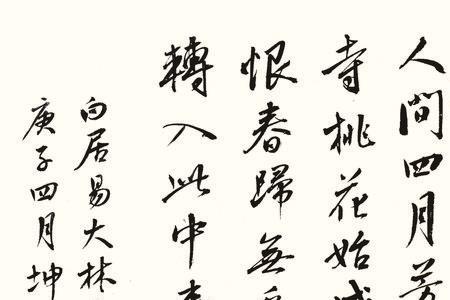 人間四月芳
寺桃花始盛
恨春歸無
轉入此中
白居易大林
庚子四月坤